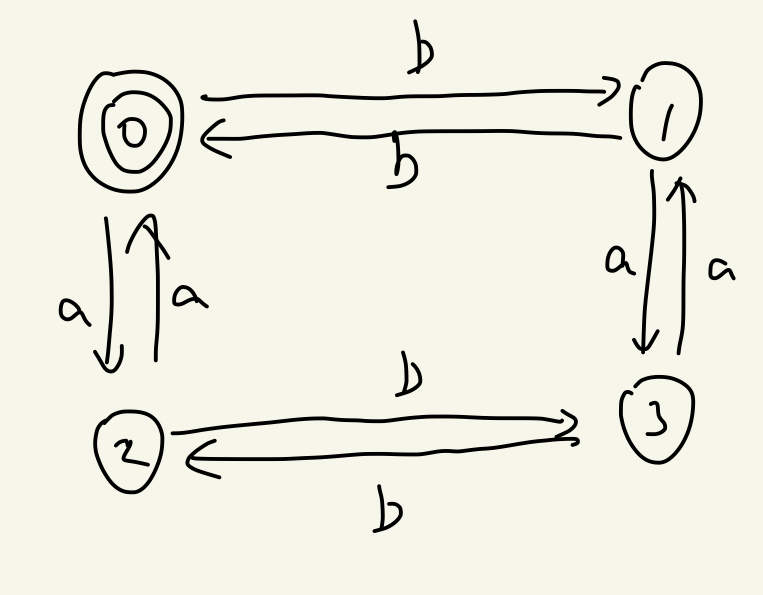 b
0 1
b
a a a a
b
2 3
b